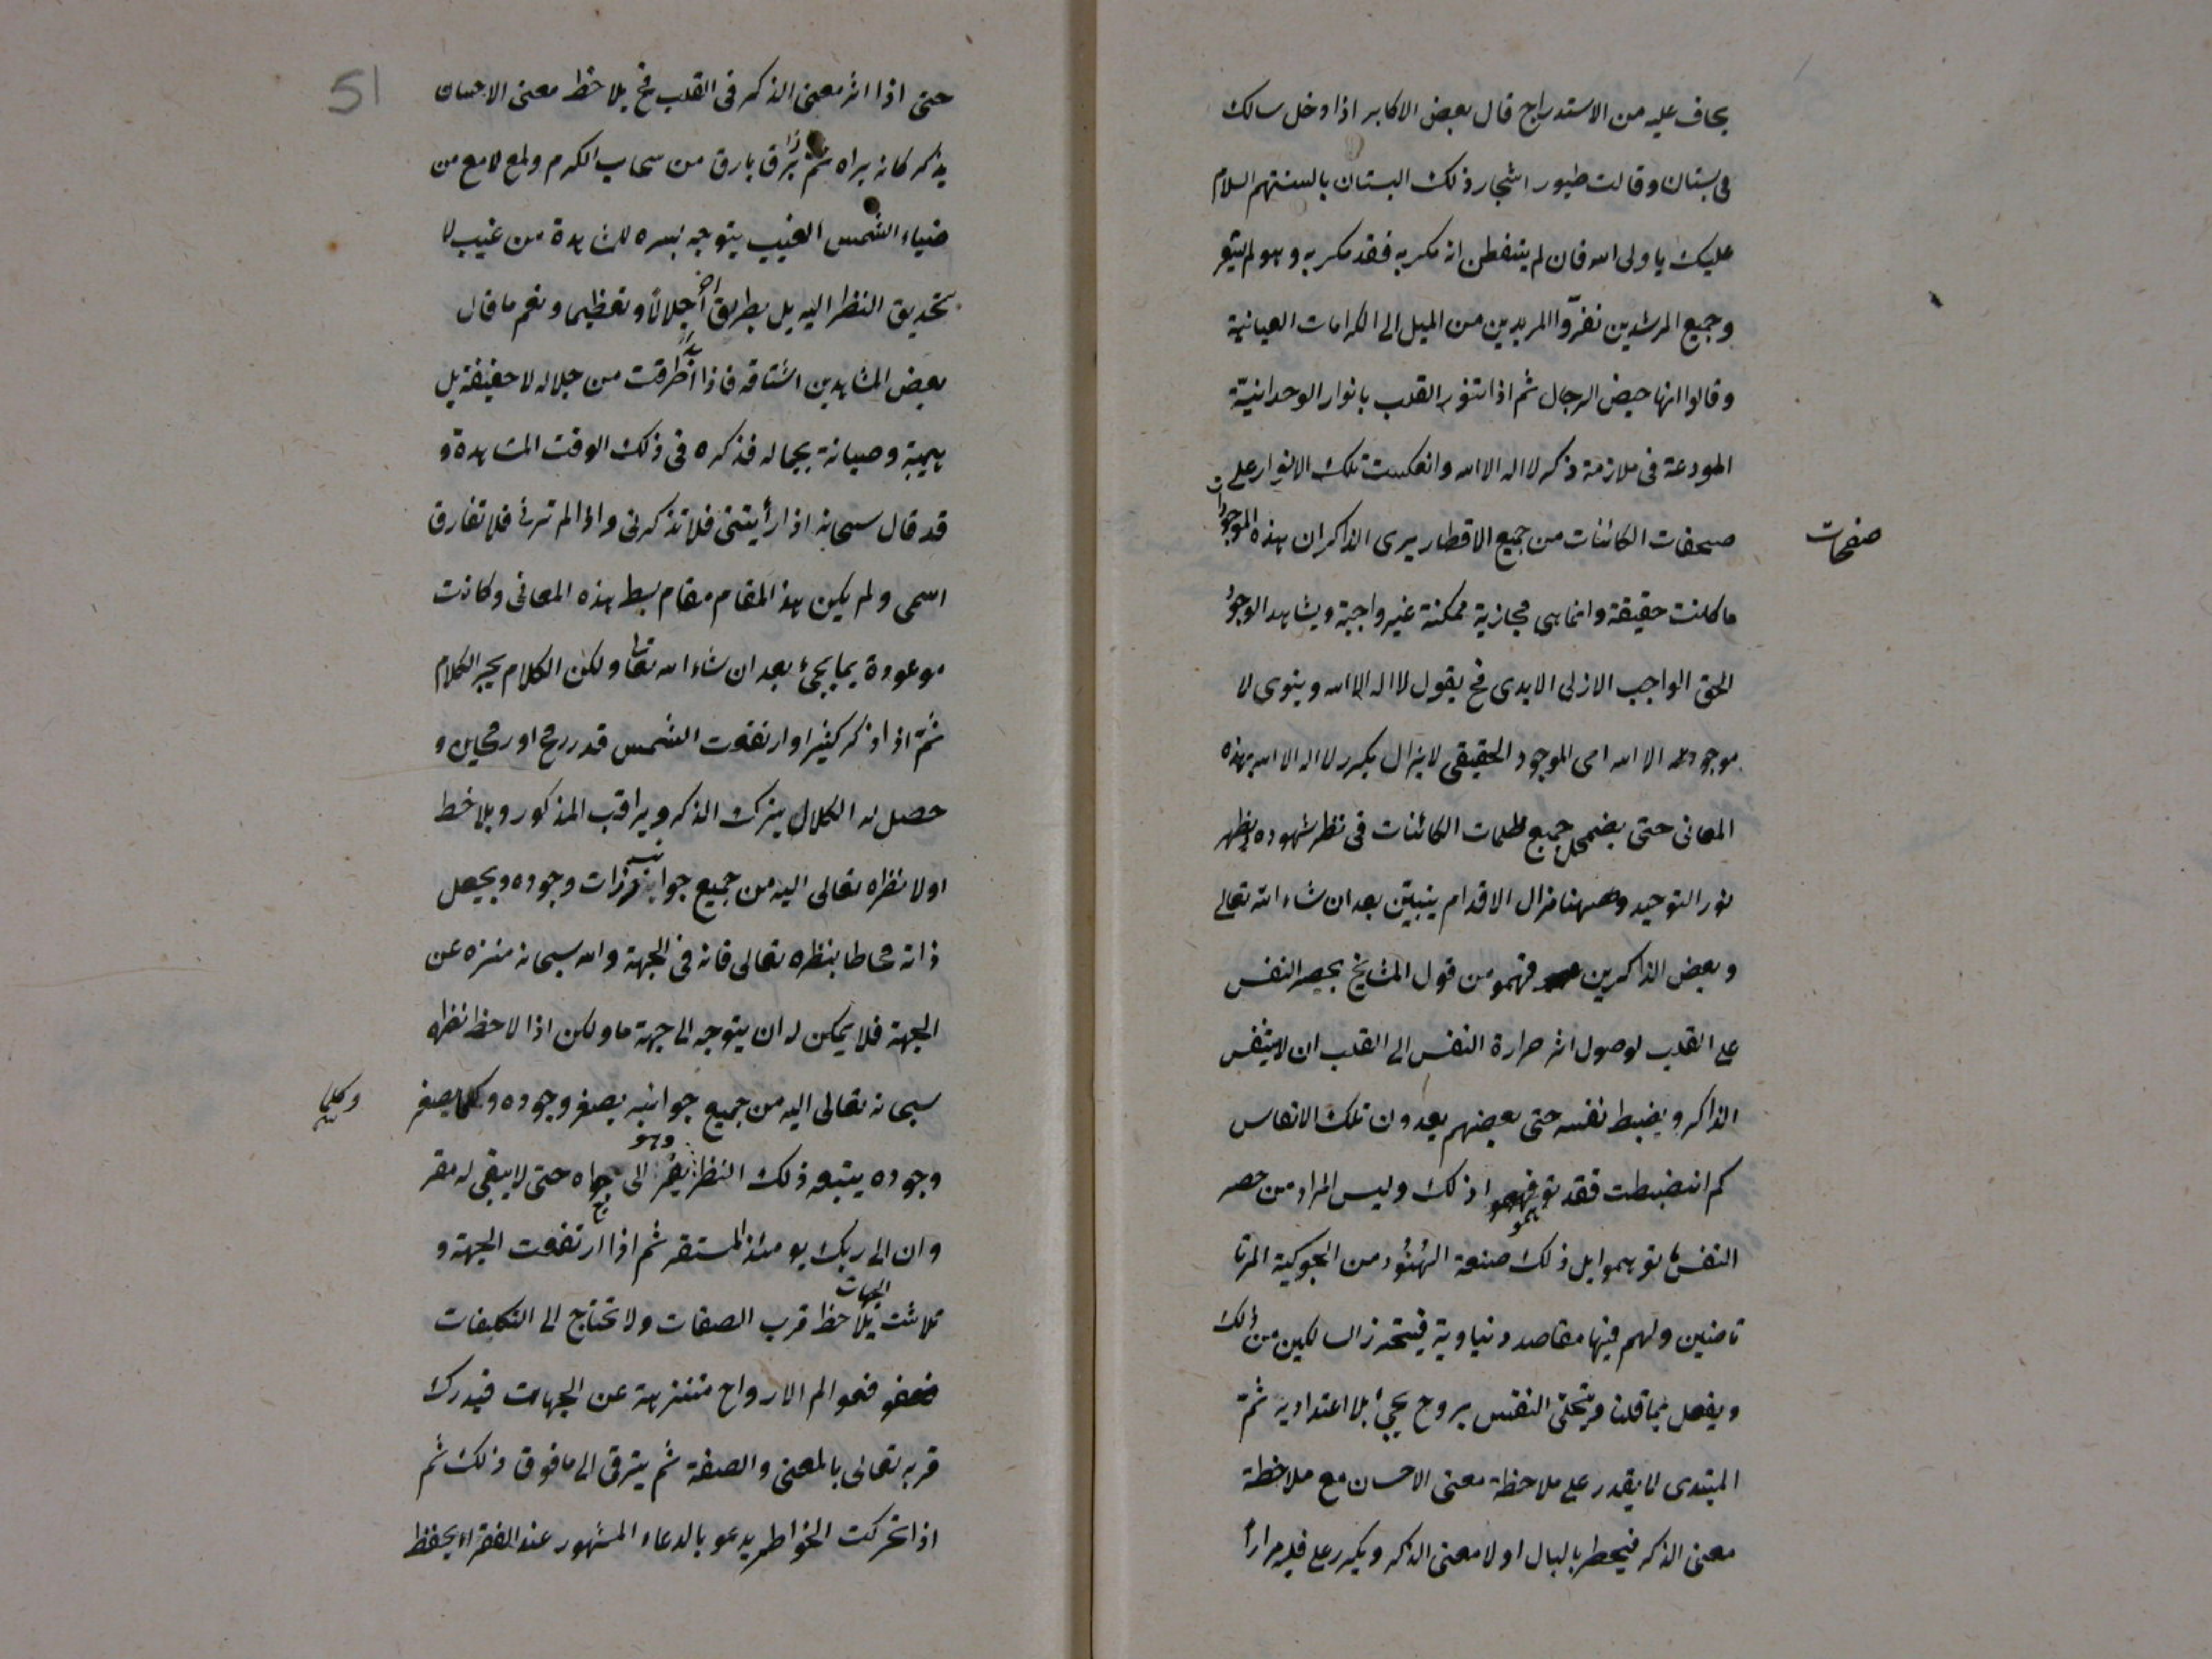 يخاف عليه من الاستدراج قال بعض الاكابر اذا دخل سالك
فى بستان وقالت طيور اشجار ذلك البستان بالسنتهم السلام
عليك يا ولى الله فان لم يتفطن انه مكر به فقد مكر به وهو لم يشعر
وجميع المرشدين نفرّوا المريدين من الميل الى الكرامات العيانية
وقالوا انها حيض الرجال ثم اذا تنور القلب بانوار الوحدانيّة
المودعة فى ملازمة ذكر لا اله الا الله وانعكست تلك الانوار على
صحفات الكائنات من جميع الاقطار يرى الذاكر ان هذه الموجودات
صفحات
ما كانت حقيقة وانما هى مجازية ممكنة غير واجبة ويشاهد الوجود
الحق الواجب الازلى الابدى فح يقول لا اله الا الله وينوى لا
موجود الا الله اى الموجود الحقيقى لا يزال يكرر لا اله الا الله بهذه
المعانى حتى يضمحل جميع ظلمات الكائنات فى نظر شهوده ويظهر
نور التوحيد وههنا مزال الاقدام يتبيّن بعد ان شاء الله تعالى
وبعض الذاكرين فهمو من قول المشايخ بحصر النفس
على القلب لوصول اثر حرارة النفس الى القلب ان لا يتنفس
الذاكر ويضبط نفسه حتى بعضهم يعدون تلك الانفاس
كم انضبطت فقد توهموا ذلك وليس المراد من حصر
النفس ما توهموا بل ذلك صنعة الهُنُود من الجوكية المرتا
تاضين ولهم فيها مقاصد دنياوية فيتحرز السالكين من ذلك
ويفعل بما قلنا ويتخلى النفس يروح يجئ بلا اعتداد به ثمّ
المبتدى لا يقدر على ملاحظة معنى الاحسان مع ملاحظة
معنى الذكر فيخطر بالبال اولا معنى الذكر ويكرر على قلبه مراراً
51
حتى اذا اثر معنى الذكر فى القلب فح يلاحظ معنى الاحسان
يذكر كانه يراه ثم اذا برق بارق من سحاب الكرم ولمع لامع من
ضياء الشمس الغيب يتوجه بسره للمشاهدة من غيب لا
بتحديق النظر اليه بل بطريق اجلالاً وتعظيما ونعم ما قال
بعض المشاهدين اشتاقه فاذا بدا اطرقت من جلاله لا خفيفة بل
هيبة وصيانة بجماله فذكره فى ذلك الوقت المشاهدة و
قد قال سبحانه اذا رأيتنى فلا تذكرنى واذا لم ترنى فلا تفارق
اسمى ولم يكن هذا المقام مقام بسط هذه المعانى وكانت
موعودة بما يجئ بعد ان شاء الله تعالى ولكن الكلام يجر الكلام
ثمّ اذا ذكر كثيرا وارتفعت الشمس قدر رمح او رمحين و
حصل له الكلال يترك الذكر ويراقب المذكور ويلاحظ
اولا نظره تعالى اليه من جميع جوانب ذرات وجوده ويجعل
ذاته محاطا بنظره تعالى فانه فى الجهة والله سبحانه منزه عن
الجهة فلا يمكن له ان يتوجه الى جهة ما ولكن اذا لاحظ نظره
سبحانه تعالى اليه من جميع جوانبه يصغر وجوده وكلما يصغر
وكلما
وجوده يتبعه ذلك النظر وهو يفر الى حتى لا يبقى له مفر
وان الى ربك يومئذ المستقر ثم اذا ارتفعت الجهة و
تلاشت الجهات يلاحظ قرب الصفات ولا تحتاج الى التكيفات
فعوالم الارواح متنزهة عن الجهات فيدرك
قربه تعالى بالمعنى والصفة ثم يترقى الى ما فوق ذلك ثم
اذا تحركت الخواطر يدعو بالدعاء المشهور عند الفقراء يحفظ